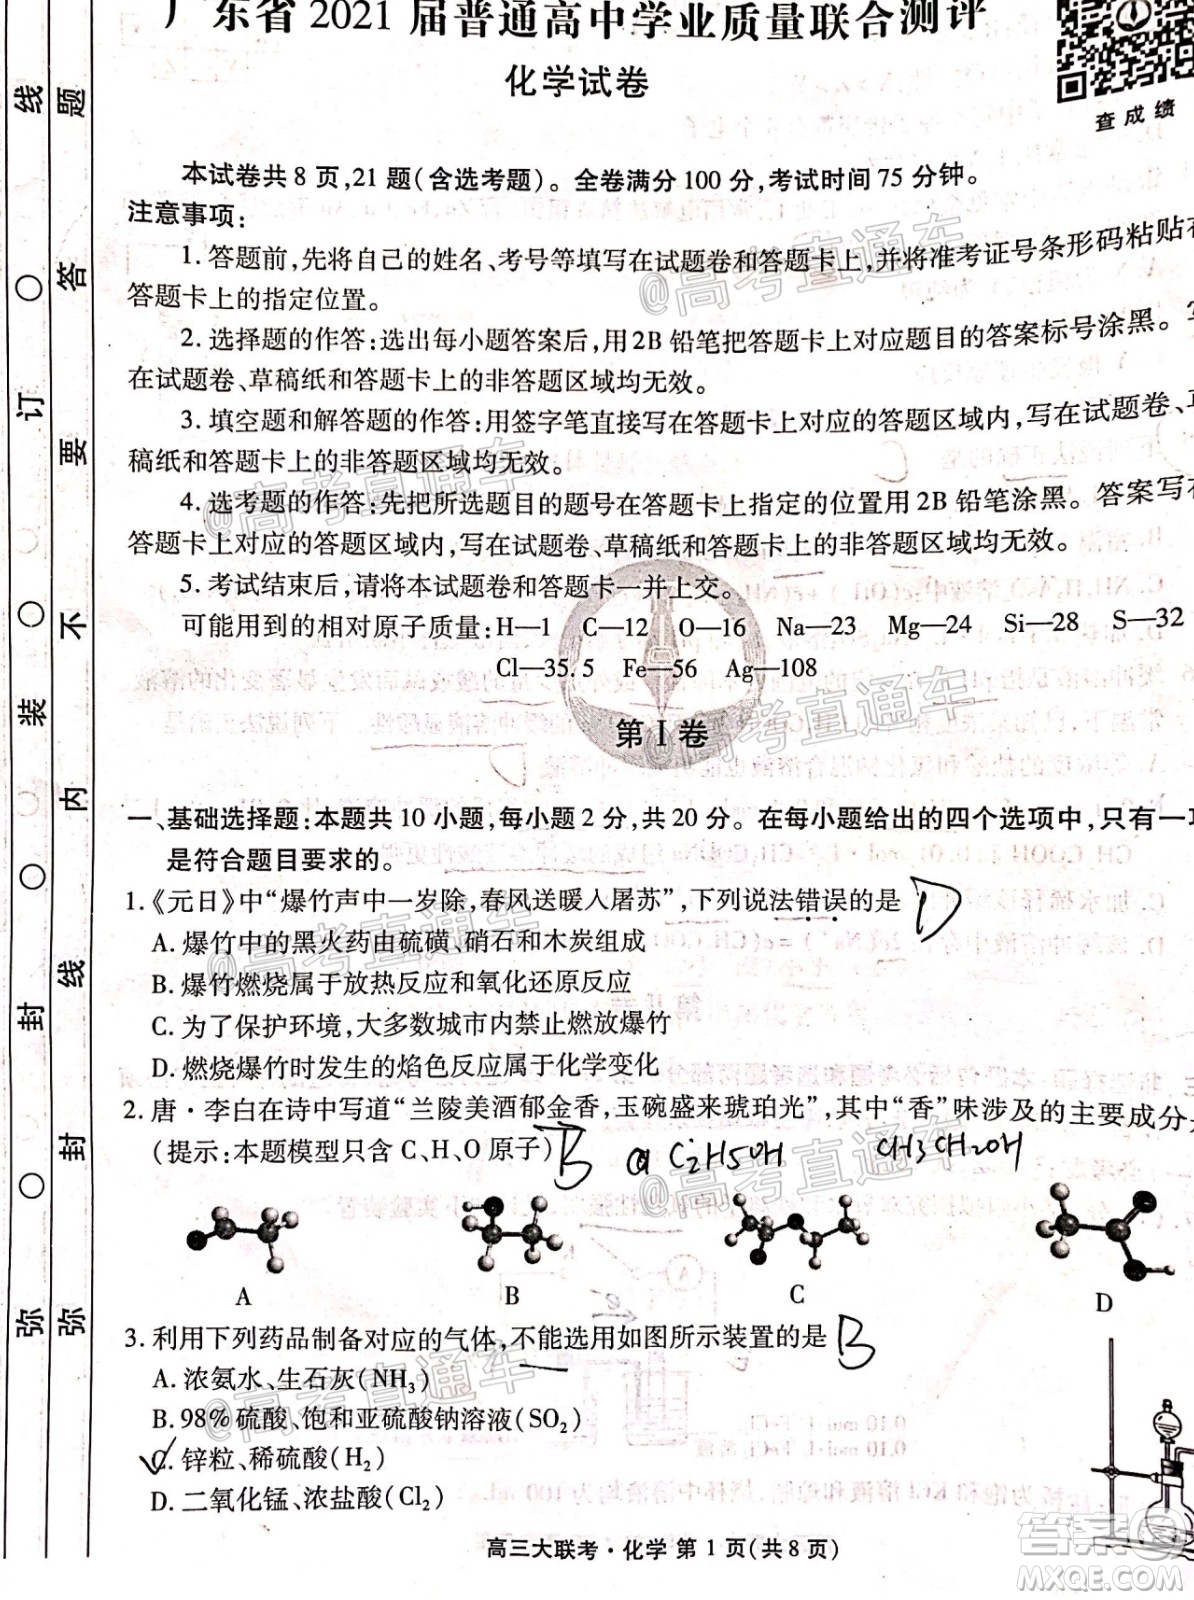 广东省 2021 届普通高中学业质量联合测评
化学试卷
查成绩
本试卷共 8 页,21 题(含选考题)。全卷满分 100 分,考试时间 75 分钟。
注意事项:
1. 答题前,先将自己的姓名、考号等填写在试题卷和答题卡上,并将准考证号条形码粘贴在
答题卡上的指定位置。
2. 选择题的作答:选出每小题答案后,用 2B 铅笔把答题卡上对应题目的答案标号涂黑。写
在试题卷、草稿纸和答题卡上的非答题区域均无效。
3. 填空题和解答题的作答:用签字笔直接写在答题卡上对应的答题区域内,写在试题卷、草
稿纸和答题卡上的非答题区域均无效。
4. 选考题的作答:先把所选题目的题号在答题卡上指定的位置用 2B 铅笔涂黑。答案写在
答题卡上对应的答题区域内,写在试题卷、草稿纸和答题卡上的非答题区域均无效。
5. 考试结束后,请将本试题卷和答题卡一并上交。
可能用到的相对原子质量:H—1 C—12 O—16 Na—23 Mg—24 Si—28 S—32
Cl—35.5 Fe—56 Ag—108
第 I 卷
一、基础选择题:本题共 10 小题,每小题 2 分,共 20 分。在每小题给出的四个选项中,只有一项
是符合题目要求的。
1.《元日》中“爆竹声中一岁除,春风送暖入屠苏”,下列说法错误的是 D
A. 爆竹中的黑火药由硫磺、硝石和木炭组成
B. 爆竹燃烧属于放热反应和氧化还原反应
C. 为了保护环境,大多数城市内禁止燃放爆竹
D. 燃烧爆竹时发生的焰色反应属于化学变化
2. 唐·李白在诗中写道“兰陵美酒郁金香,玉碗盛来琥珀光”,其中“香”味涉及的主要成分是
(提示:本题模型只含 C、H、O 原子) B C2H5OH CH3CH2OH
A B C D
3. 利用下列药品制备对应的气体,不能选用如图所示装置的是 B
A. 浓氨水、生石灰(NH₃)
B. 98% 硫酸、饱和亚硫酸钠溶液(SO₂)
C. 锌粒、稀硫酸(H₂)
D. 二氧化锰、浓盐酸(Cl₂)
高三大联考·化学 第 1 页(共 8 页)
弥 封 装 订 线
弥 封 线 内 不 要 答 题
@高考直通车
@高考直通车
@高考直通车
@高考直通车
@高考直通车
@高考直通车
答案圈
MXQE.COM